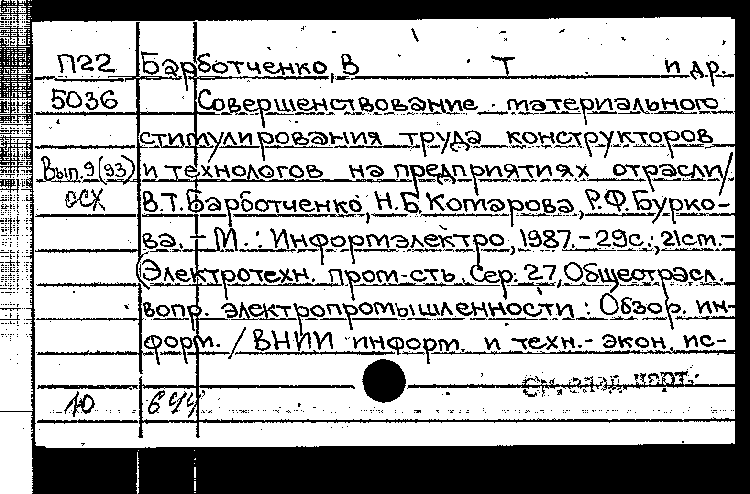 П22 Барботченко, В Т и др.
5036 Совершенствование материального
стимулирования труда конструкторов
Вып.9(93) и технологов на предприятиях отрасли/
ОСХ В.Т.Барботченко, Н.Б Комарова, Р.Ф.Бурко-
ва. - М.: Информэлектро, 1987.- 29с.; 21см.-
(Электротехн. пром-сть. Сер. 27, Общеотрасл.
вопр. электропромышленности: Обзор. ин-
форм. / ВНИИ информ. и техн.- экон. ис-
См. след. карт.
10 644